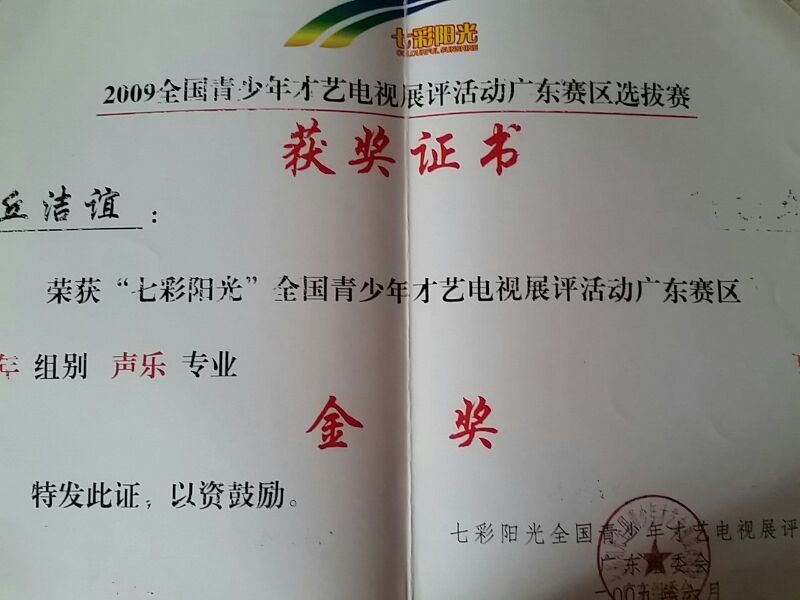 七彩阳光
COLOURFUL SUNSHINE
2009全国青少年才艺电视展评活动广东赛区选拔赛
获奖证书
丘洁谊：
荣获“七彩阳光”全国青少年才艺电视展评活动广东赛区
年 组别 声乐 专业
金奖
特发此证，以资鼓励。
七彩阳光全国青少年才艺电视展评
广东组委会
二〇〇九年六月